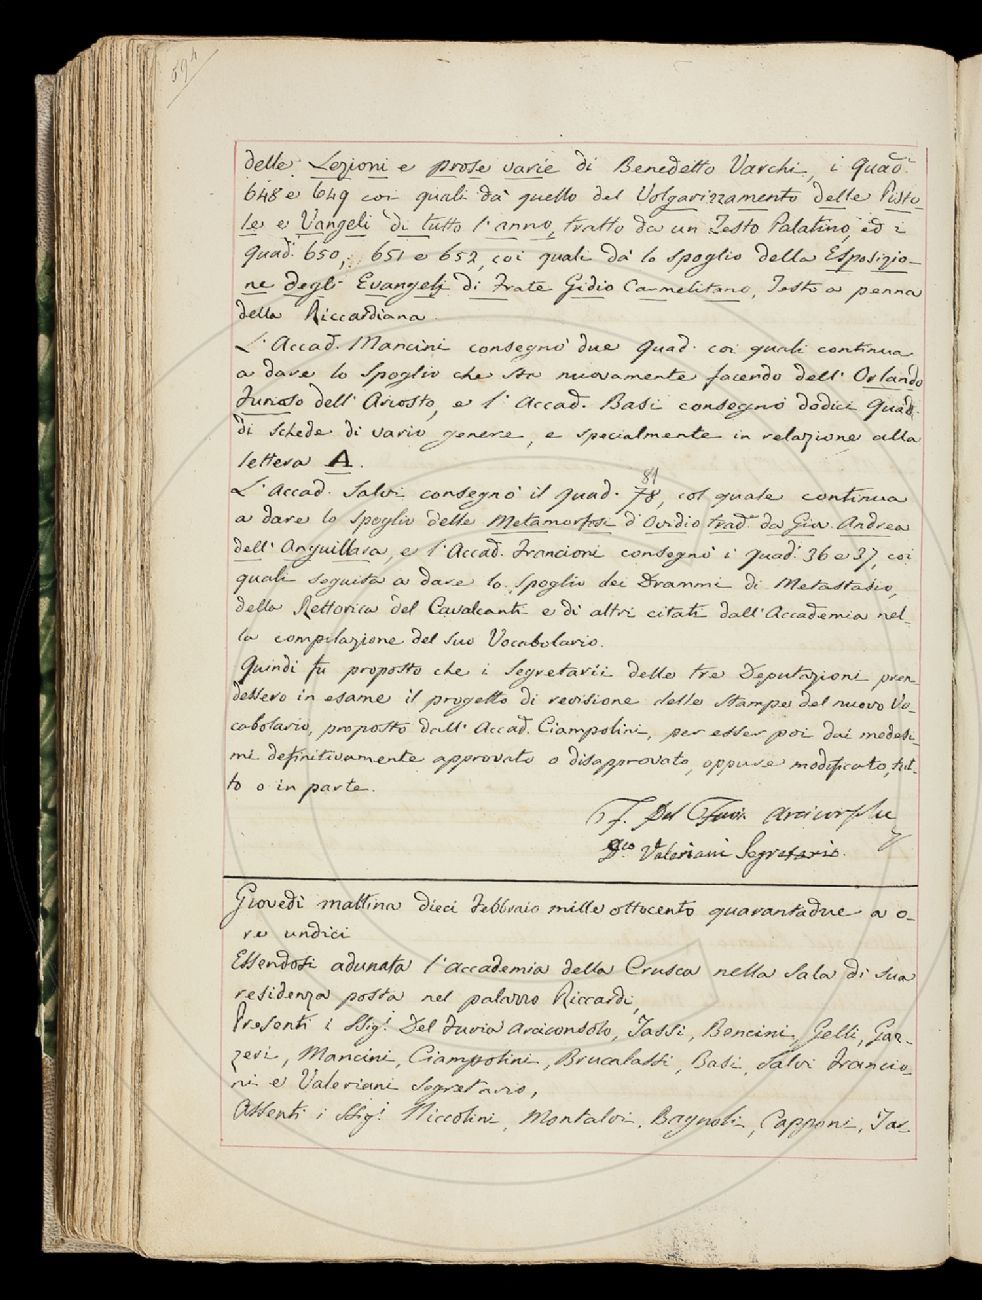 594
delle Lezioni e prose varie di Benedetto Varchi, i Quad.
648 e 649 coi quali dà quello del Volgarizzamento delle Pisto-
le e Vangeli di tutto l'anno, tratto da un Testo Palatino, ed i
quad. 650, 651 e 652, coi quali dà lo spoglio della Esposizio-
ne degli Evangelj di Frate Gidio Carmelitano, Testo a penna
della Riccardiana.
L'Accad. Mancini consegnò due Quad. coi quali continua
a dare lo Spoglio che sta nuovamente facendo dell'Orlando
Furioso dell'Ariosto, e l'Accad. Basi consegnò dodici Quad.
di schede di vario genere, e specialmente in relazione alla
lettera A.
81
L'Accad. Salvi consegnò il quad. 78, col quale continua
a dare lo Spoglio delle Metamorfosi d'Ovidio trad.e da Gio. Andrea
dell'Anguillara, e l'Accad. Francioni consegnò i quad. 36 e 37, coi
quali seguita a dare lo Spoglio dei Drammi di Metastasio,
della Rettorica del Cavalcanti e di altri citati dall'Accademia nel-
la compilazione del suo Vocabolario.
Quindi fu proposto che i Segretarii delle tre Deputazioni pren-
dessero in esame il progetto di revisione delle stampe del nuovo Vo-
cabolario, proposto dall'Accad. Ciampolini, per esser poi dai medesi-
mi definitivamente approvato o disapprovato, oppure modificato, tut-
to o in parte.
F. Del Furia Arciconsolo
Valeriani Segretario.
Giovedì mattina dieci Febbraio mille ottocento quarantadue a o-
re undici
Essendosi adunata l'Accademia della Crusca nella Sala di sua
residenza posta nel palazzo Riccardi,
Presenti i Sig.i Del Furia Arciconsolo, Tassi, Bencini, Gelli, Gaz-
zeri, Mancini, Ciampolini, Brucalassi, Basi, Salvi Francio-
ni e Valeriani Segretario,
Assenti i Sig.i Niccolini, Montalvi, Bagnoli, Capponi, Tar-